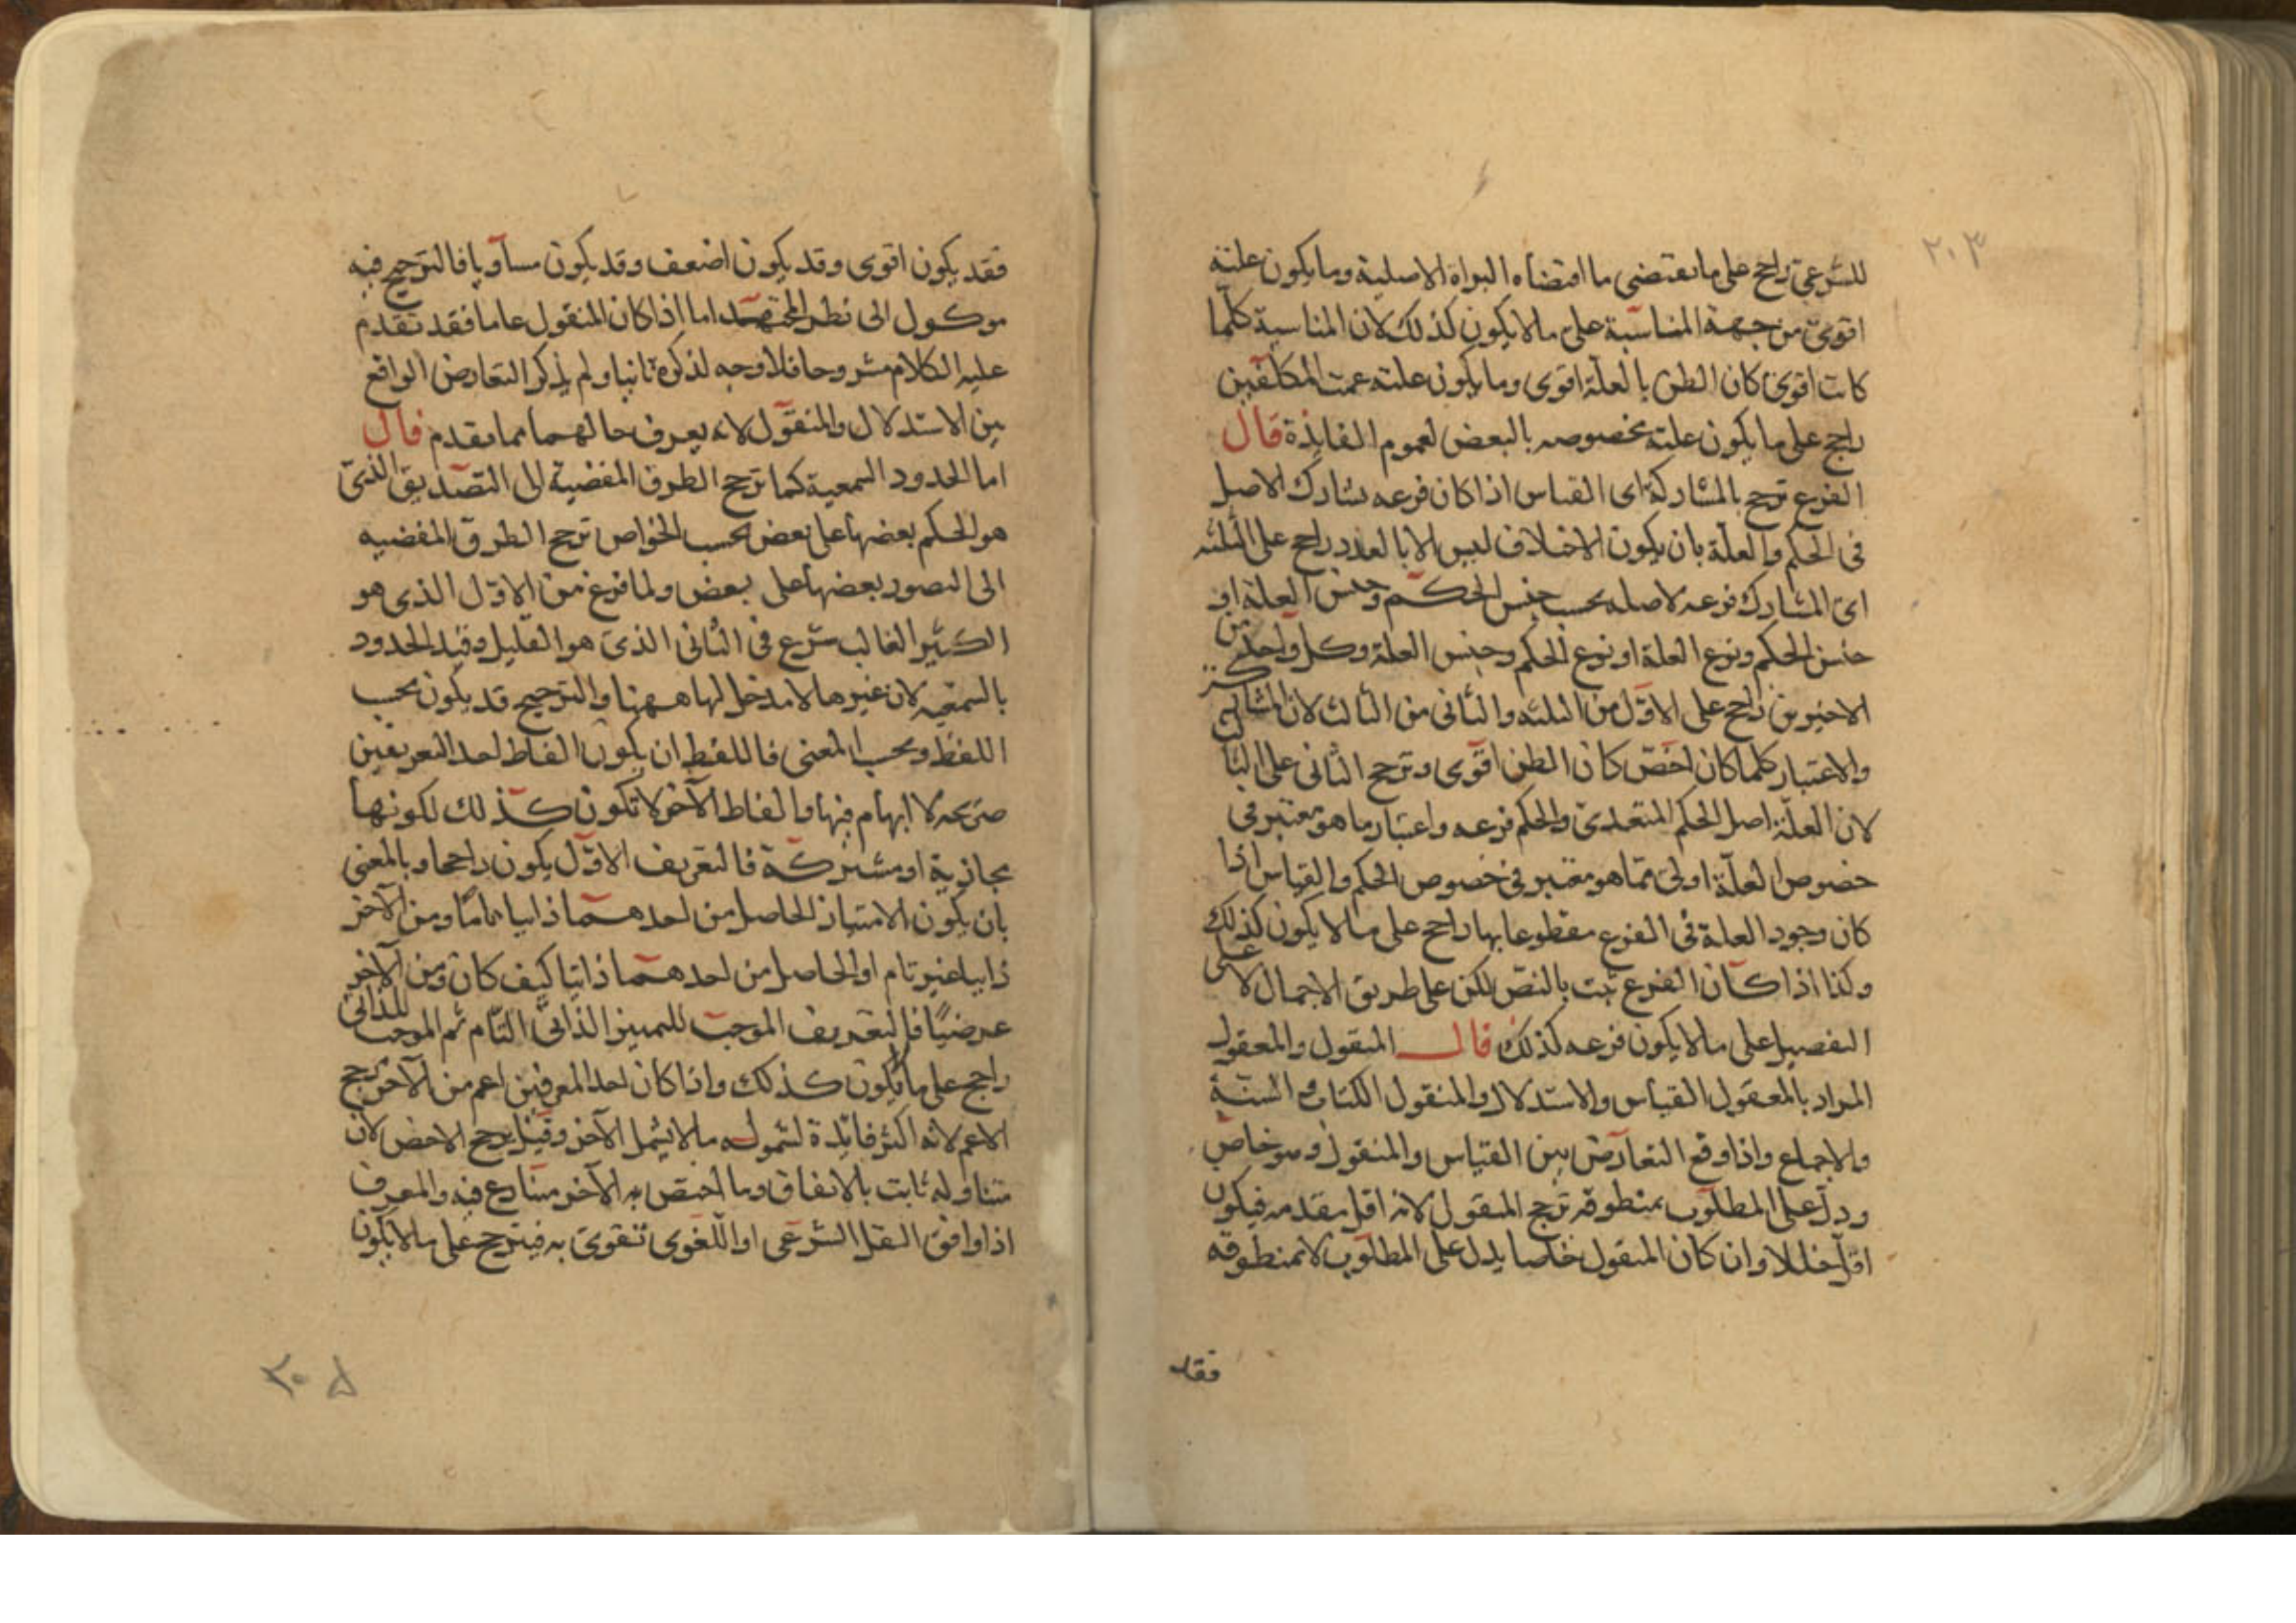 ٢٠٣
للشرعي راجح على ما يقتضي ما اقتضاه البراة الاصلية وما يكون علته
اقوى من جهة المناسبة على ما لا يكون كذلك لان المناسبة كلما
كانت اقوى كان الظن بالعلة اقوى وما يكون علته عمت المكلفين
راجح على ما يكون علته مخصوصه بالبعض لعموم الفايدة قال
الفرع ترجح بالمشاركة اى القياس اذا كان فرعه يشارك الاصل
فى الحكم والعلة بان يكون الاختلاف ليس الا بالعدد راجح على الثلثه
اى المشارك فرعه لاصله بحسب جنس الحكم وجنس العلة او
جنس الحكم ونوع العلة او نوع الحكم وجنس العلة وكل واحد من
الاخيرين راجح على الاول من الثلثه والثانى من الثالث لان
والاعتبار كلما كان اخص كان الظن اقوى وترجح الثانى على
لان العلة اصل الحكم المتعدى والحكم فرعه واعتبار ما هو معتبر فى
خصوص العلة اولى مما هو معتبر فى خصوص الحكم والقياس اذا
كان وجود العلة فى الفرع مقطوعا بها راجح على ما لا يكون كذلك
وكذا اذا كان الفرع ثبت بالنص لكن على طريق الاجمال لا على
التفصيل على ما لا يكون فرعه كذلك قال المنقول والمعقول
المراد بالمعقول القياس والاستدلال والمنقول الكتاب والسنة
والاجماع واذا وقع التعارض بين القياس والمنقول وهو خاص
ودل على المطلوب بمنطوقه ترجح المنقول لانه اقل مقدمه فيكون
اقل خللا وان كان المنقول خاصا يدل على المطلوب لا بمنطوقه
فقد
فقد يكون اقوى وقد يكون اضعف وقد يكون مساويا فالترجيح فيه
موكول الى نظر المجتهد اما اذا كان المنقول عاما فقد تقدم
عليه الكلام مشروحا فلا وجه لذكره ثانيا ولم يذكر التعارض الواقع
بين الاستدلال والمنقول لانه يعرف حالهما مما تقدم قال
اما الحدود السمعية كما ترجح الطرق المفضية الى التصديق الذى
هو الحكم بعضها على بعض بحسب الخواص ترجح الطرق المفضيه
الى التصور بعضها على بعض ولما فرغ من الاول الذى هو
الكثير الغالب شرع فى الثانى الذى هو القليل وقيد الحدود
بالسمعيه لان غيرها لا مدخل لها ههنا والترجيح قد يكون بحسب
اللفظ وبحسب المعنى فاللفظ ان يكون الفاظ احد التعريفين
صريحه لا ابهام فيها والفاظ الآخر لا تكون كذلك لكونها
مجازية او مشتركة فالتعريف الاول يكون راجحا وبالمعنى
بان يكون الامتياز الحاصل من احدهما ذاتيا تاما ومن الآخر
ذاتيا غير تام او الحاصل من احدهما ذاتيا كيف كان ومن الآخر
عرضيا فالتعريف الموجب للتمييز الذاتى التام ثم الموجب للذاتى
راجح على ما لا يكون كذلك واذا كان احد المعرفين اعم من الآخر ترجح
الاعم لانه اكثر فايدة لشموله ما لا يشمل الآخر وقيل يرجح الاخص لان
متناوله ثابت بالاتفاق وما اختص به الآخر متنازع فيه والمعرف
اذا وافق النقل الشرعى او اللغوى تقوى به فيترجح على ما لا يكون
٢٠٥